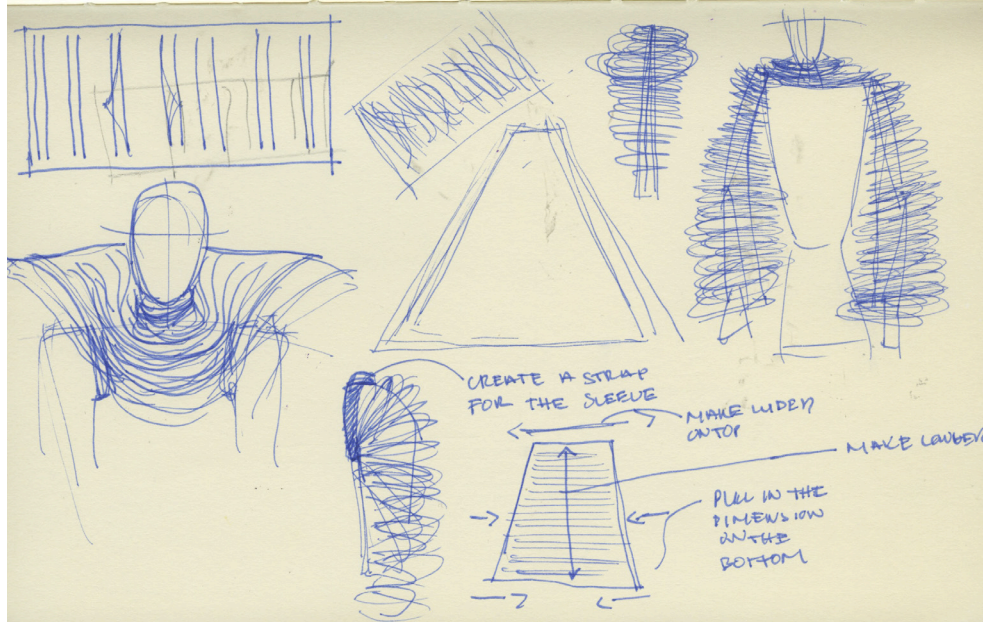 CREATE A STRAP
FOR THE SLEEVE
MAKE WIDER
ON TOP
MAKE LONGER
PULL IN THE
DIMENSION
ON THE
BOTTOM